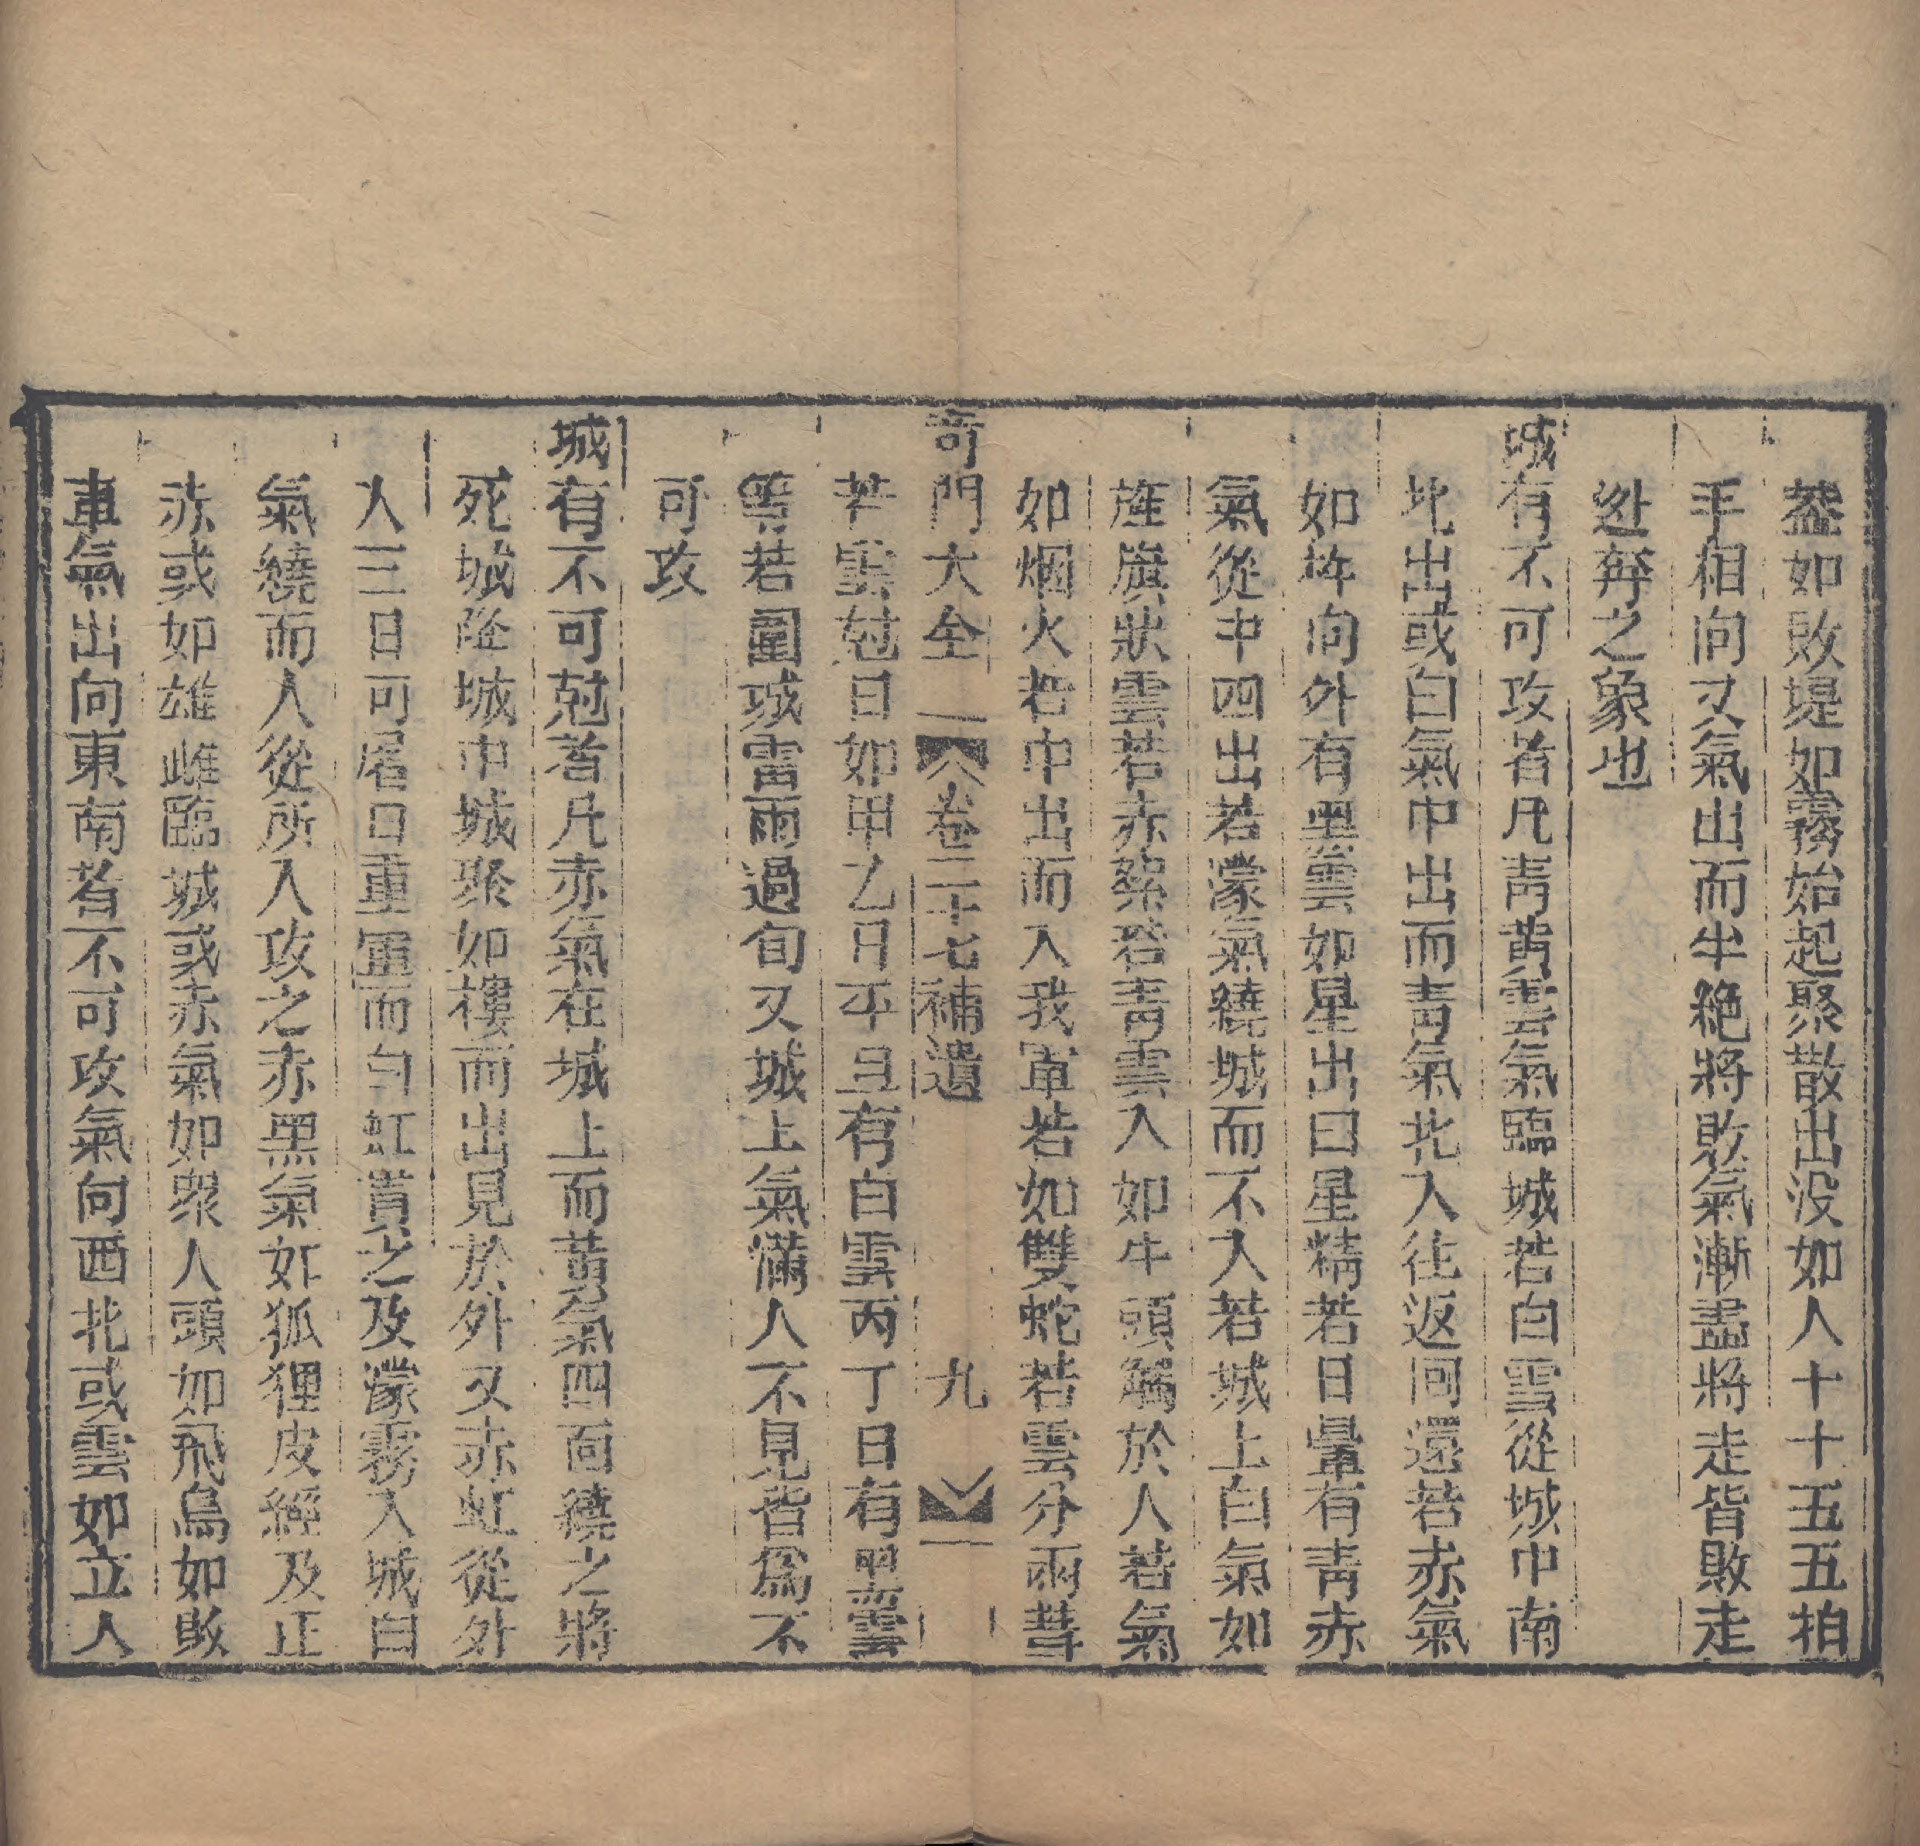 葢如敗堤如霧始起聚散出没如人十十五五拍
手相向又氣出而半絶將敗氣漸盡將走皆敗走
逃奔之象也
城有不可攻者凡靑黄雲氣臨城若白雪從城巾南
北出或白氣中出而靑氣北入往返囘還若赤氣
如杵向外有黑雲如星出曰星精若日暈有靑赤
氣從中四出若濛氣繞城而不入若城上白氣如
旌旗狀雲若赤祭若靑雲入如牛頭觸於人若氣
如烟火若中出而入我軍若如雙蛇若雲分兩彗
奇門大全 卷二十七補遺 九
若雲尅日如甲乙日平旦有白雲丙丁日有黑雲
等若圍城雷雨過旬又城上氣滿人不見皆爲不
可攻
城有不可尅者凡赤氣在城上而黃氣四面繞之將
死城陷城中城聚如樓而出見於外又赤虹從外
入三日可屠日重暈而勻虹貫之及濛霧入城白
氣繞而人從所入攻之赤黑氣如狐狸皮經及正
赤或如雄雌臨城或赤氣如衆人頭如飛鳥如敗
車氣出向東南者不可攻氣向西北或雲如立人